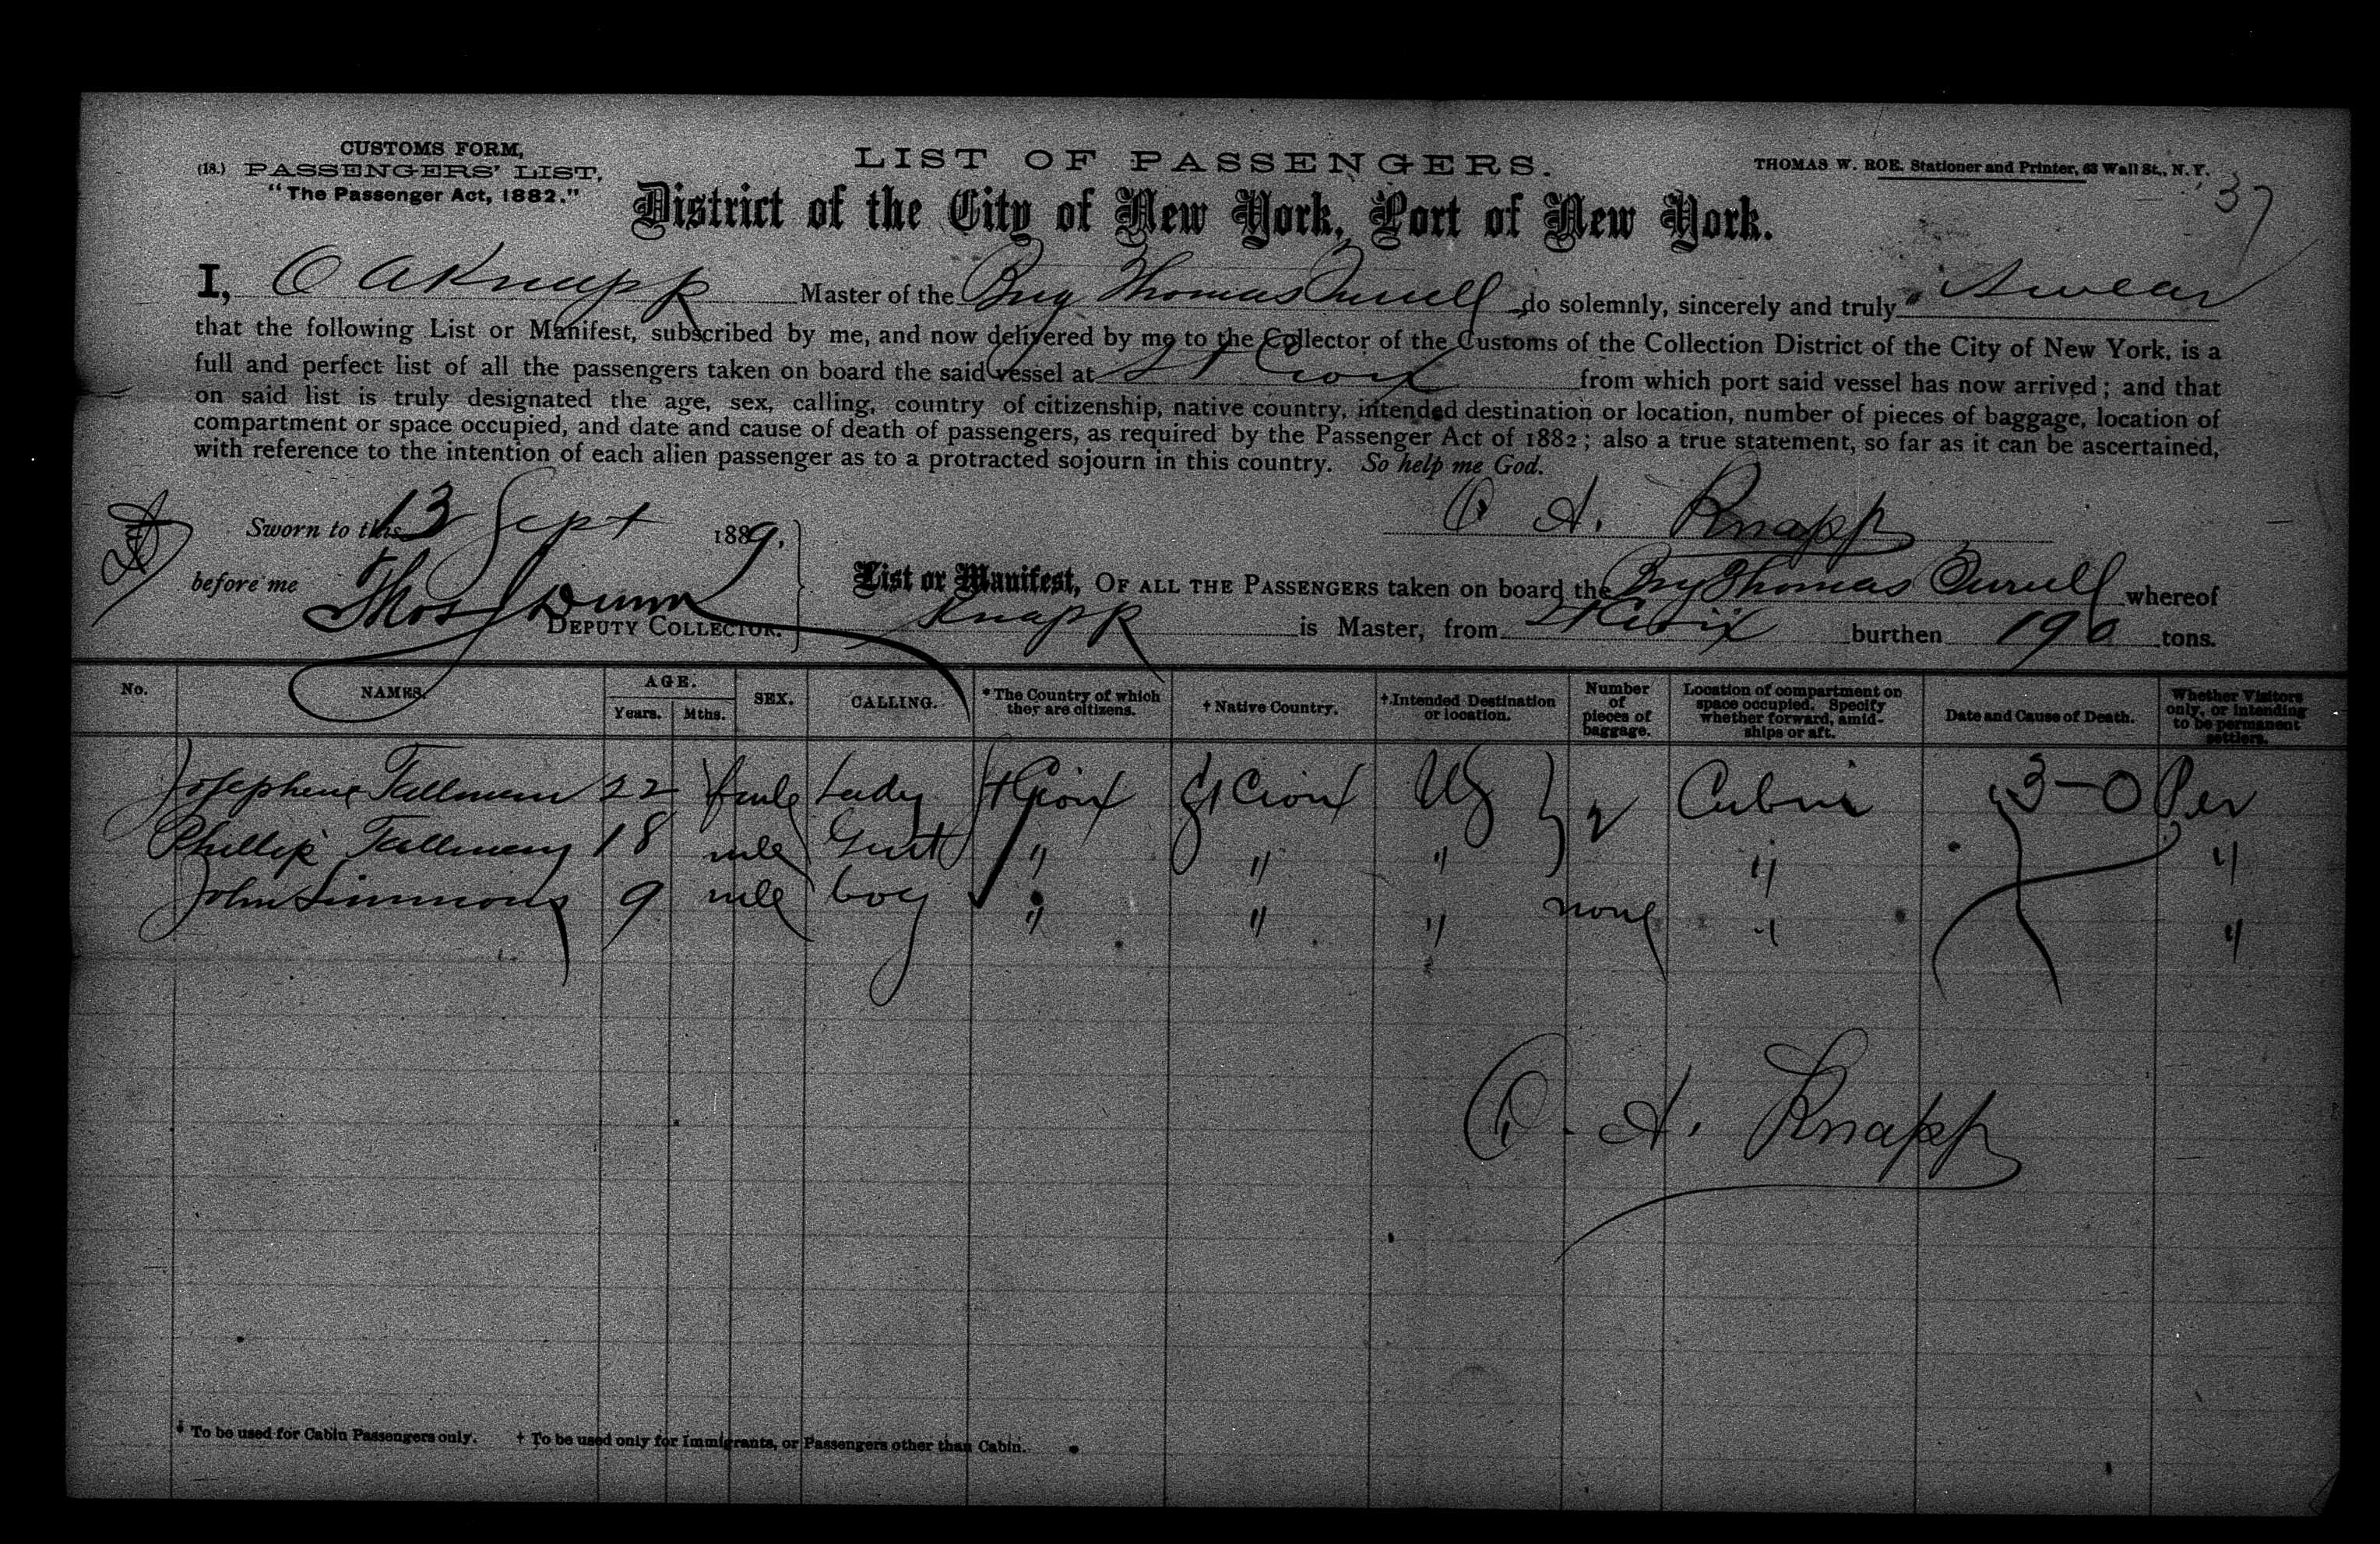 CUSTOMS FORM,
(18.) PASSENGERS' LIST,
"The Passenger Act, 1882."
LIST OF PASSENGERS.
THOMAS W. ROE, Stationer and Printer, 63 Wall St., N.Y.
37
District of the City of New York, Port of New York.
I, O A Knapp Master of the Brig Thomas Turrell do solemnly, sincerely and truly Swear
that the following List or Manifest, subscribed by me, and now delivered by me to the Collector of the Customs of the Collection District of the City of New York, is a
full and perfect list of all the passengers taken on board the said vessel at St Croix from which port said vessel has now arrived; and that
on said list is truly designated the age, sex, calling, country of citizenship, native country, intended destination or location, number of pieces of baggage, location of
compartment or space occupied, and date and cause of death of passengers, as required by the Passenger Act of 1882; also a true statement, so far as it can be ascertained,
with reference to the intention of each alien passenger as to a protracted sojourn in this country. So help me God.
Sworn to this 13 Sept 1889.
O A. Knapp
before me Thos J Dunn
DEPUTY COLLECTOR.
List or Manifest, OF ALL THE PASSENGERS taken on board the Brig Thomas Turrell whereof
Knapp is Master, from St Croix burthen 190 tons.
No. NAMES. AGE. Years. Mths. SEX. CALLING. *The Country of which they are citizens. † Native Country. †Intended Destination or location. Number of pieces of baggage. Location of compartment on space occupied. Specify whether forward, amidships or aft. Date and Cause of Death. Whether Visitors only, or intending to be permanent settlers.
Josephine Tallman 22 fmle Lady St Croix St Croix US 2 Cabin 3-0 Per
Phillip Tallman 18 mle Gent " " " " "
John Simmons 9 mle boy " " " none " "
O. A. Knapp
* To be used for Cabin Passengers only. † To be used only for Immigrants, or Passengers other than Cabin.